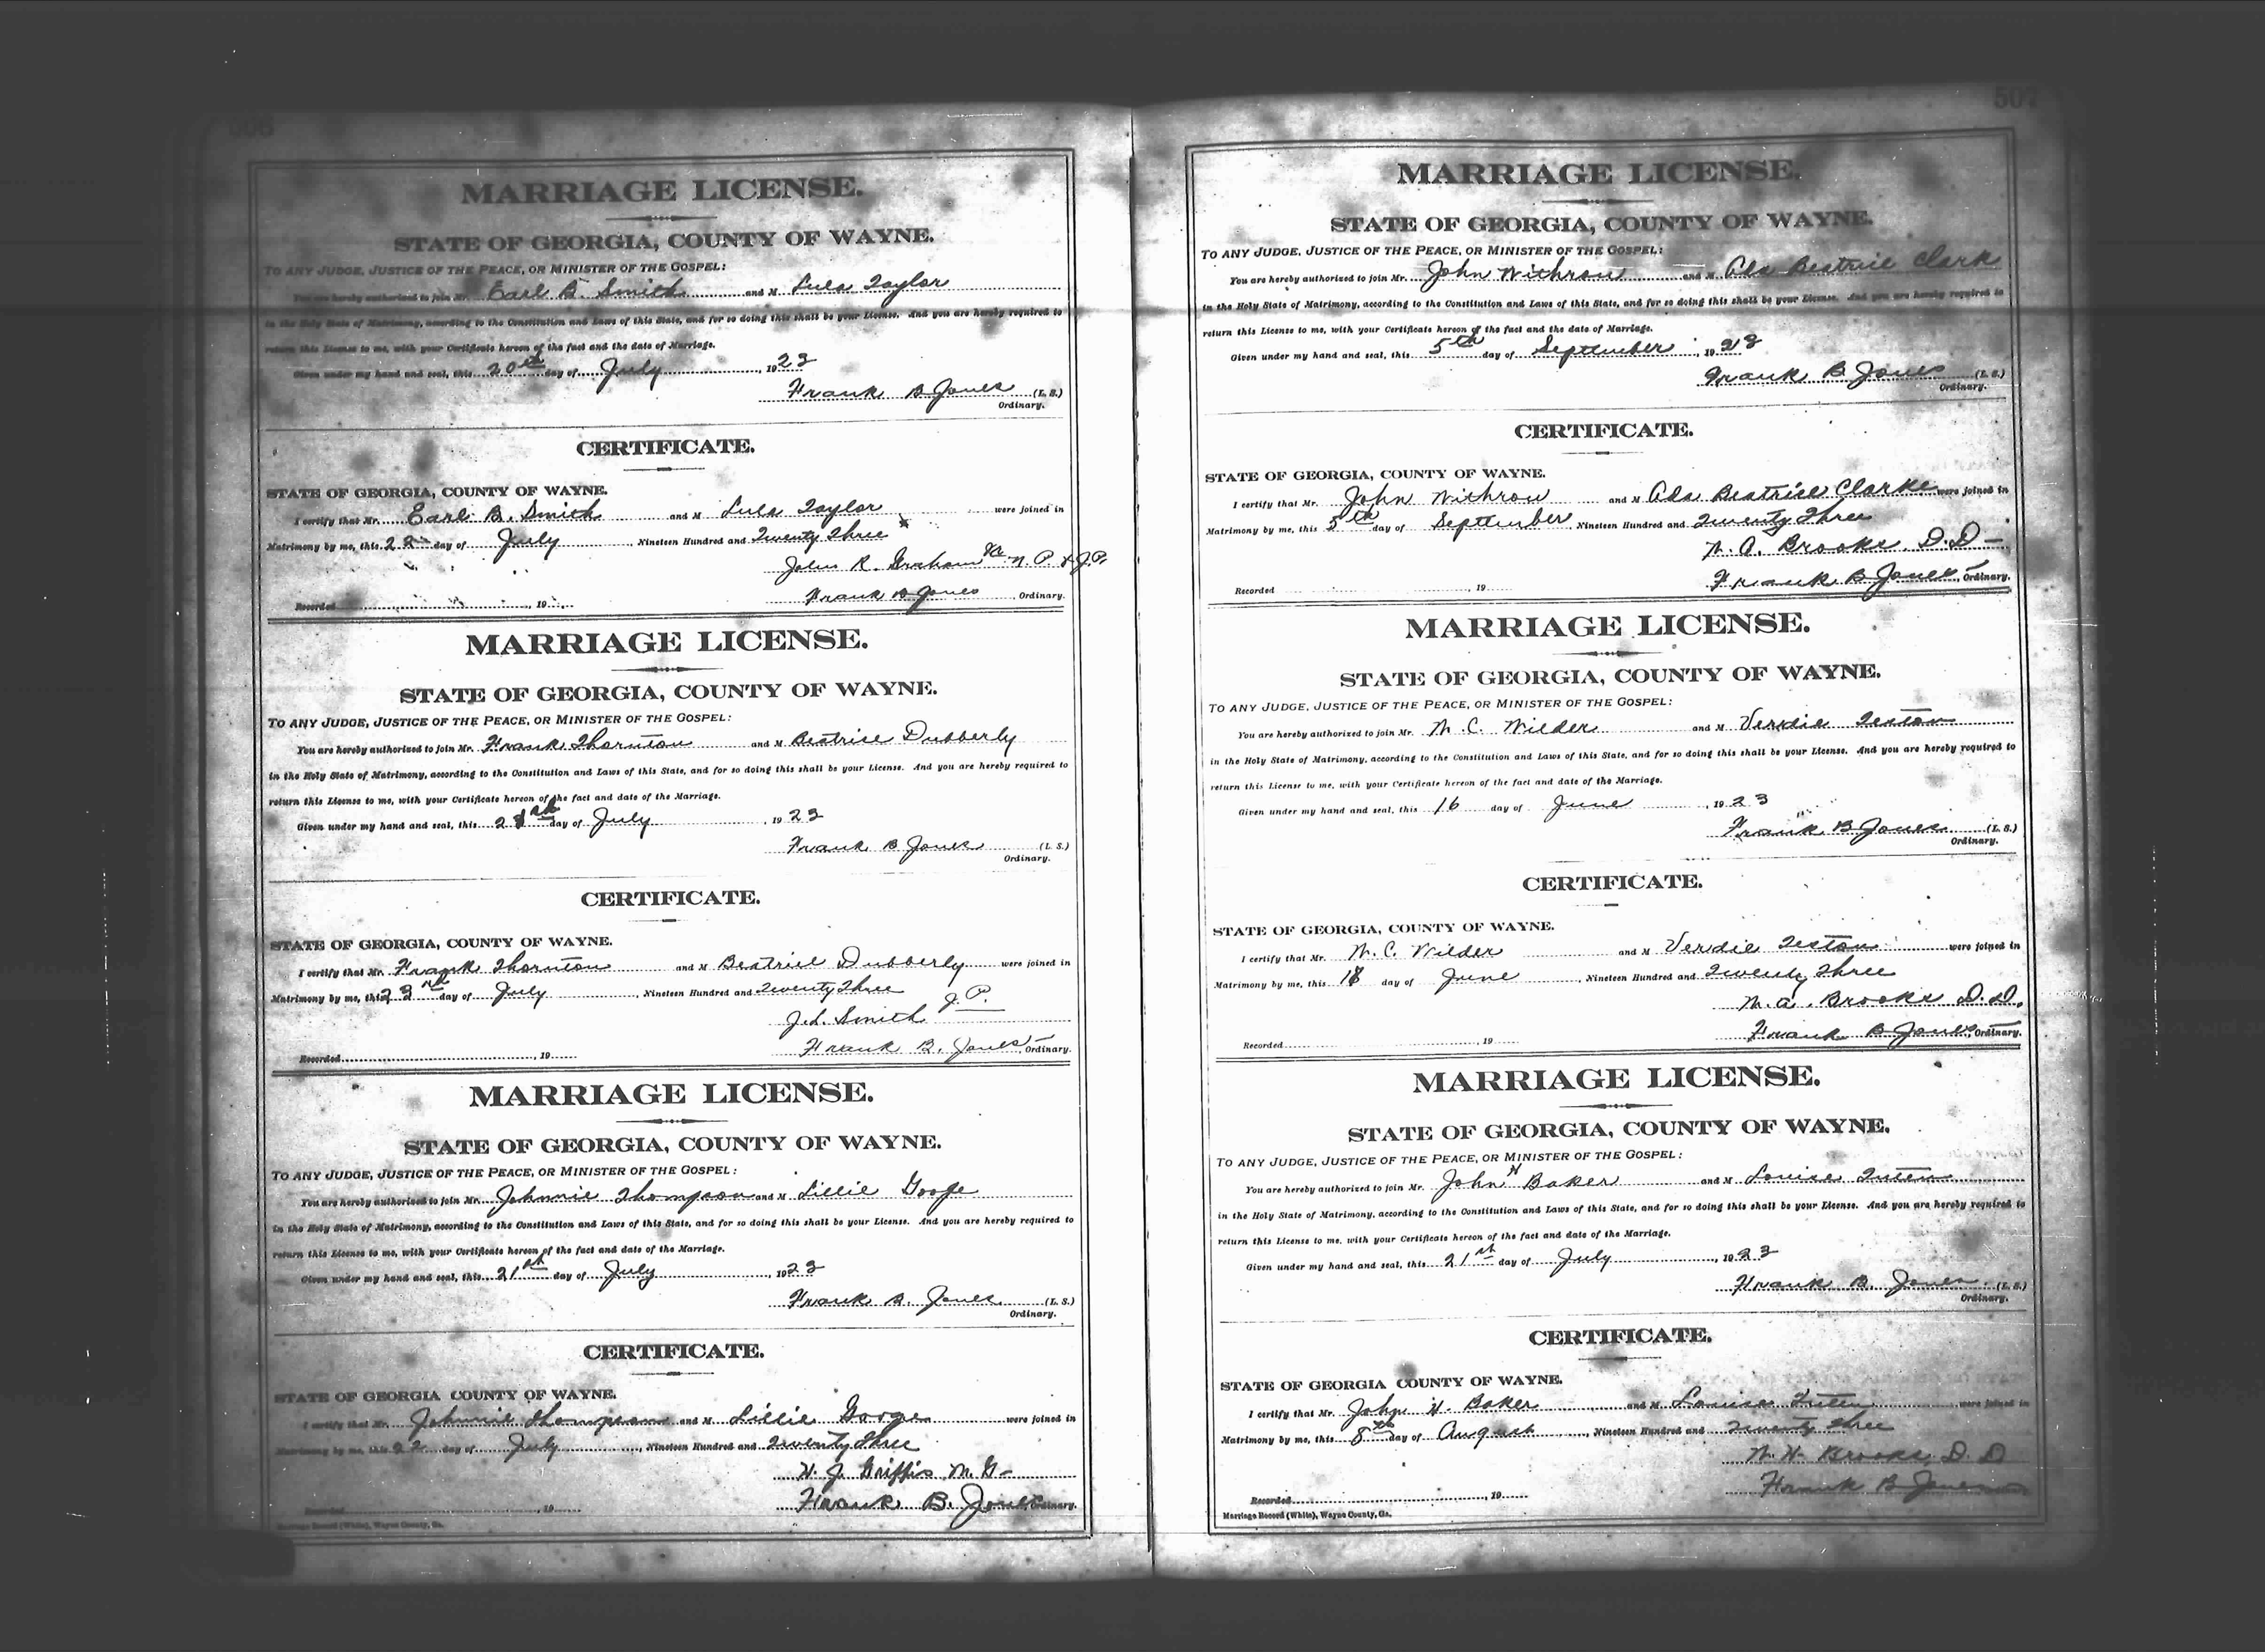 506
MARRIAGE LICENSE.
STATE OF GEORGIA, COUNTY OF WAYNE.
TO ANY JUDGE, JUSTICE OF THE PEACE, OR MINISTER OF THE GOSPEL:
You are hereby authorized to join Mr. Earl B. Smith and M Lula Taylor
in the Holy State of Matrimony, according to the Constitution and Laws of this State, and for so doing this shall be your License. And you are hereby required to
return this License to me, with your Certificate hereon of the fact and the date of Marriage.
Given under my hand and seal, this 20th day of July, 1923
Frank B Jones (L. S.)
Ordinary.
CERTIFICATE.
STATE OF GEORGIA, COUNTY OF WAYNE.
I certify that Mr. Earl B. Smith and M Lula Taylor were joined in
Matrimony by me, this 22 day of July, Nineteen Hundred and Twenty Three
John R. Graham N. P. & J. P.
Frank B Jones Ordinary.
Recorded , 19
MARRIAGE LICENSE.
STATE OF GEORGIA, COUNTY OF WAYNE.
TO ANY JUDGE, JUSTICE OF THE PEACE, OR MINISTER OF THE GOSPEL:
You are hereby authorized to join Mr. Frank Thornton and M Beatrice Dubberly
in the Holy State of Matrimony, according to the Constitution and Laws of this State, and for so doing this shall be your License. And you are hereby required to
return this License to me, with your Certificate hereon of the fact and date of the Marriage.
Given under my hand and seal, this day of July, 1923
Frank B Jones (L. S.)
Ordinary.
CERTIFICATE.
STATE OF GEORGIA, COUNTY OF WAYNE.
I certify that Mr. Frank Thornton and M Beatrice Dubberly were joined in
Matrimony by me, this 23rd day of July, Nineteen Hundred and Twenty Three
J. L. Smith J. P.
Frank B. Jones, Ordinary.
Recorded , 19
MARRIAGE LICENSE.
STATE OF GEORGIA, COUNTY OF WAYNE.
TO ANY JUDGE, JUSTICE OF THE PEACE, OR MINISTER OF THE GOSPEL:
You are hereby authorized to join Mr. Johnnie Thompson and M Lillie
in the Holy State of Matrimony, according to the Constitution and Laws of this State, and for so doing this shall be your License. And you are hereby required to
return this License to me, with your Certificate hereon of the fact and date of the Marriage.
Given under my hand and seal, this 21st day of July, 1923
Frank B. Jones (L. S.)
Ordinary.
CERTIFICATE.
STATE OF GEORGIA COUNTY OF WAYNE.
I certify that Mr. Johnnie Thompson and M Lillie were joined in
Matrimony by me, this 22 day of July, Nineteen Hundred and Twenty Three
H. J. Griffis M. G.
Frank B. Jones Ordinary.
Recorded , 19
Marriage Record (White), Wayne County, Ga.
507
MARRIAGE LICENSE.
STATE OF GEORGIA, COUNTY OF WAYNE.
TO ANY JUDGE, JUSTICE OF THE PEACE, OR MINISTER OF THE GOSPEL:
You are hereby authorized to join Mr. John Withrow and M Ada Beatrice Clark
in the Holy State of Matrimony, according to the Constitution and Laws of this State, and for so doing this shall be your License. And you are hereby required to
return this License to me, with your Certificate hereon of the fact and the date of Marriage.
Given under my hand and seal, this 5th day of September, 1923
Frank B Jones (L. S.)
Ordinary.
CERTIFICATE.
STATE OF GEORGIA, COUNTY OF WAYNE.
I certify that Mr. John Withrow and M Ada Beatrice Clarke were joined in
Matrimony by me, this 5th day of September, Nineteen Hundred and Twenty Three
W. A. Brooke D. D.
Frank B Jones, Ordinary.
Recorded , 19
MARRIAGE LICENSE.
STATE OF GEORGIA, COUNTY OF WAYNE.
TO ANY JUDGE, JUSTICE OF THE PEACE, OR MINISTER OF THE GOSPEL:
You are hereby authorized to join Mr. W. C. Wilder and M Verdie Teston
in the Holy State of Matrimony, according to the Constitution and Laws of this State, and for so doing this shall be your License. And you are hereby required to
return this License to me, with your Certificate hereon of the fact and date of the Marriage.
Given under my hand and seal, this 16 day of June, 1923
Frank B Jones (L. S.)
Ordinary.
CERTIFICATE.
STATE OF GEORGIA, COUNTY OF WAYNE.
I certify that Mr. W. C. Wilder and M Verdie Teston were joined in
Matrimony by me, this 18 day of June, Nineteen Hundred and Twenty Three
W. A. Brooke D. D.
Frank B Jones, Ordinary.
Recorded , 19
MARRIAGE LICENSE.
STATE OF GEORGIA, COUNTY OF WAYNE.
TO ANY JUDGE, JUSTICE OF THE PEACE, OR MINISTER OF THE GOSPEL:
You are hereby authorized to join Mr. John H Baker and M Louise Tuten
in the Holy State of Matrimony, according to the Constitution and Laws of this State, and for so doing this shall be your License. And you are hereby required to
return this License to me, with your Certificate hereon of the fact and date of the Marriage.
Given under my hand and seal, this 21st day of July, 1923
Frank B. Jones (L. S.)
Ordinary.
CERTIFICATE.
STATE OF GEORGIA COUNTY OF WAYNE.
I certify that Mr. John H. Baker and M Louise Tuten were joined in
Matrimony by me, this 5th day of August, Nineteen Hundred and Twenty Three
W. H. Brooke, D. D
Frank B Jones
Recorded , 19
Marriage Record (White), Wayne County, Ga.